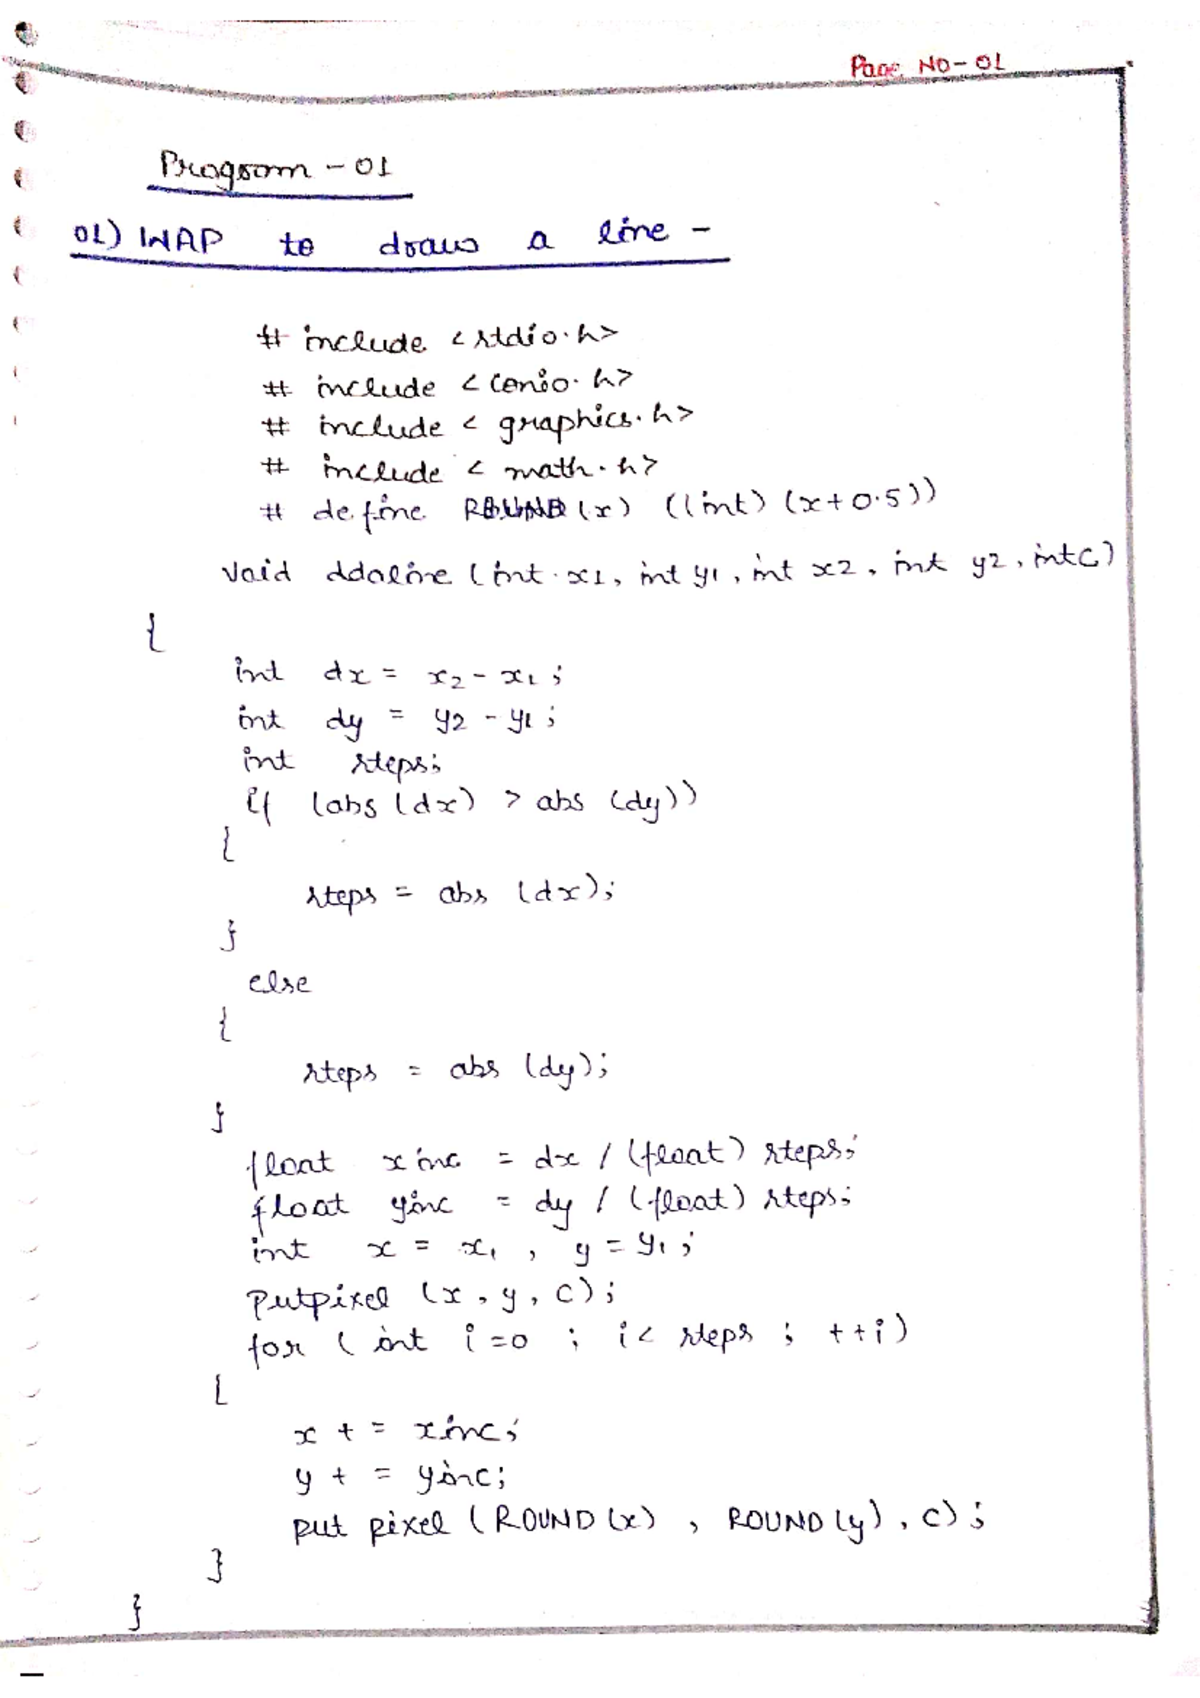 Page No-01
Program - 01
01) WAP to draw a line -
# include <stdio.h>
# include <conio.h>
# include < graphics.h>
# include < math.h>
# define ROUND(x) ((int) (x+0.5))
void ddaline (int x1, int y1, int x2, int y2, int c)
{
int dx = x2 - x1 ;
int dy = y2 - y1 ;
int steps;
if (abs (dx) > abs (dy))
{
steps = abs (dx);
}
else
{
steps = abs (dy);
}
float xinc = dx / (float) steps;
float yinc = dy / (float) steps;
int x = x1 , y = y1 ;
putpixel (x, y, c);
for ( int i=0 ; i< steps ; ++i)
{
x + = xinc;
y + = yinc;
put pixel (ROUND (x) , ROUND (y), c) ;
}
}